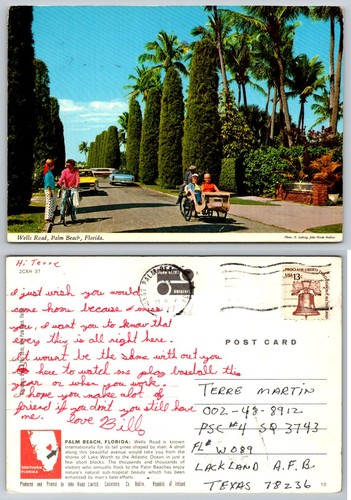 Wells Road, Palm Beach, Florida.
Hi Terre
2CXH 37
I just wish you would
come home because I miss
you, I want you to know that
every thing is all right here.
It wount be the same with out you
here to watch me play baseball this
year or when you work.
I hope you make alot of
friend if you don't you still have
me. Love Bill
POST CARD
USA
13c
TERRE MARTIN
002-48-8912
PSC #4 SQ 3743
FL# W089
LACKLAND A.F.B.
TEXAS 78236
SOUTHERN FLORIDA
PALM BEACH, FLORIDA: Wells Road is known
internationally for its tall pines shaped by man. A stroll
along this beautiful avenue would take you from the
shores of Lake Worth to the Atlantic Ocean in just a
few short blocks. The thousands and thousands of
visitors who annually flock to the Palm Beaches enjoy
nature's natural sub-tropical beauty which has been
enhanced by man's keen effort.